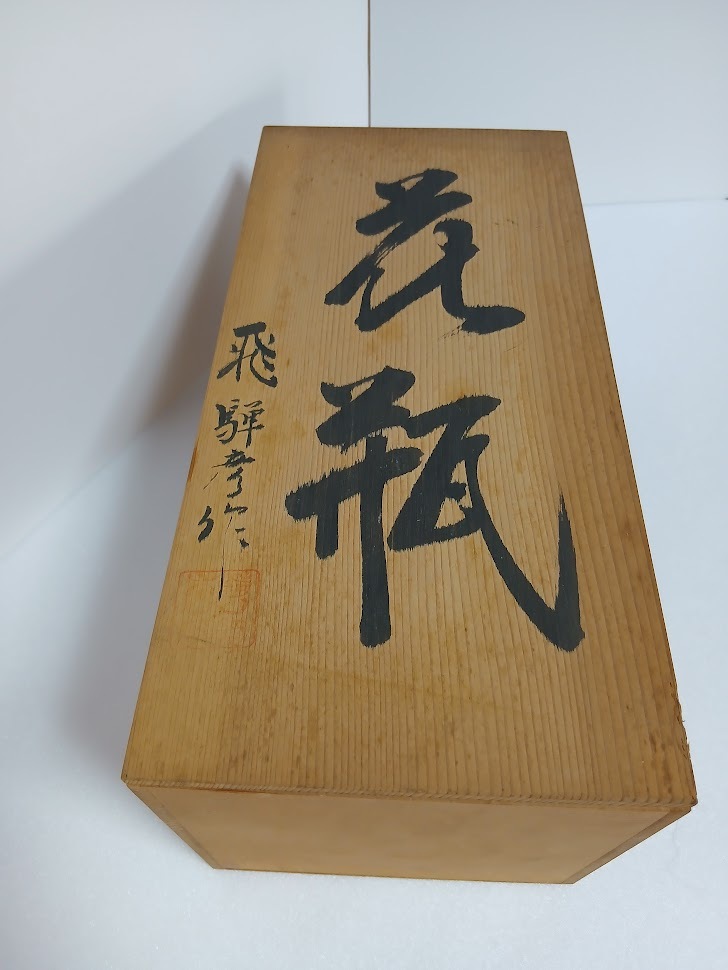 花瓶
飛騨彦作